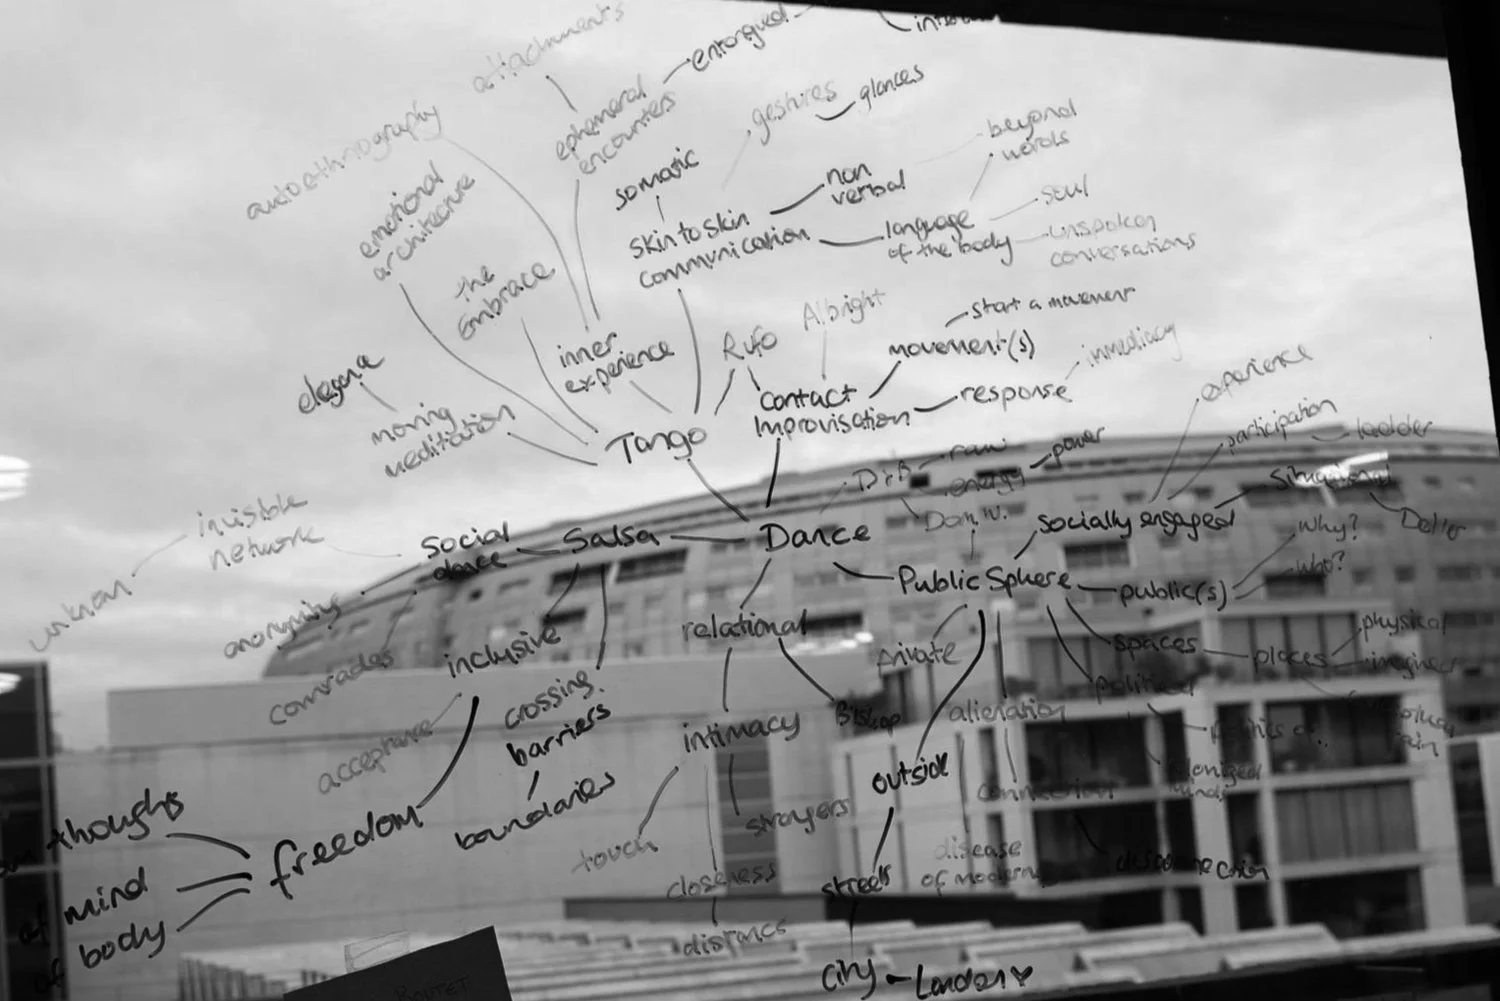 attachments
entangled
autoethnography
ephemeral
encounters
gestures
glances
beyond
words
emotional
architecture
somatic
non
verbal
skin to skin
communication
language
of the body
soul
unspoken
conversations
the
embrace
inner
experience
Rufo
Albright
start a movement
movement(s)
immediacy
contact
Improvisation
response
moving
meditation
Tango
experience
participation
ladder
raw
energy
power
invisible
network
social
dance
Salsa
Dance
socially engaged
Why?
who?
anonymity
Public Sphere
public(s)
comrades
inclusive
relational
private
spaces
places
physical
acceptance
crossing
barriers
intimacy
Bishop
alienation
political
politics of..
thoughts
freedom
boundaries
touch
strangers
outside
connection
colonized
minds
of mind
of body
closeness
streets
disease
of modern
disconnection
distance
city – London